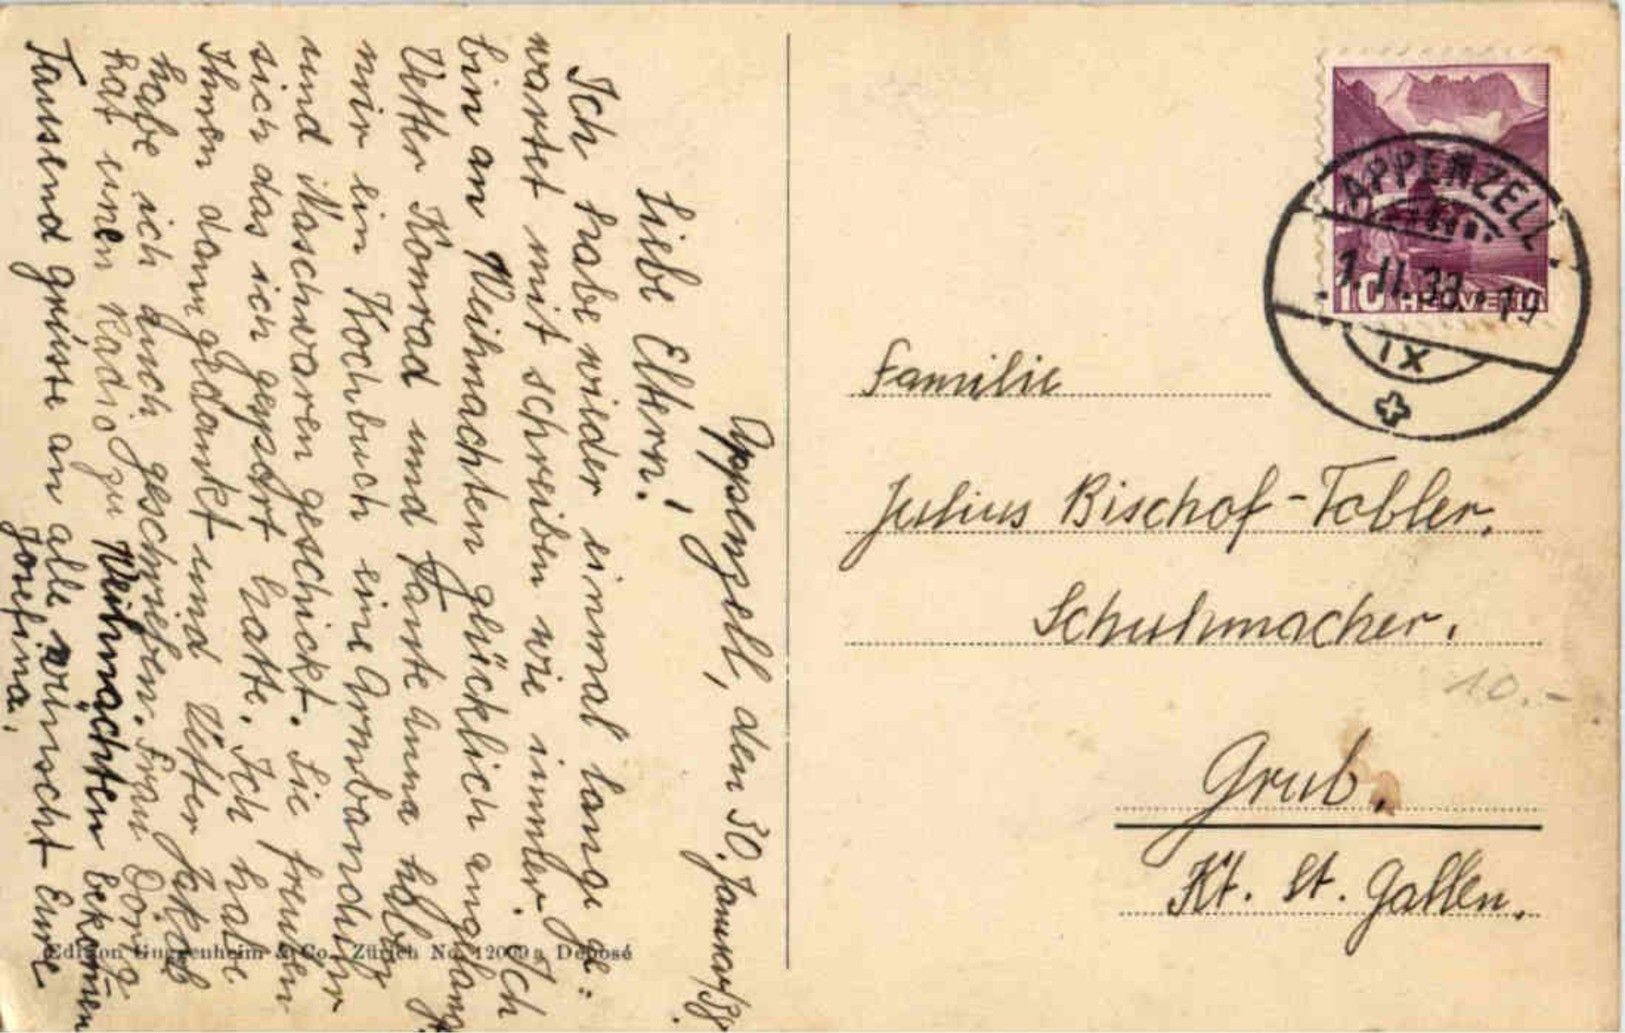 Appenzell, den 30. Januar/38.
Liebe Eltern!
Ich habe wilder einmal lange ge=
wartet mit schreiben wie immer. Ich
bin an Weihnachten glücklich angelangt.
Vetter Konrad und Tante Anna haben
mir ein Kochbuch eine Armbanduhr
und Naschwaren geschickt. Sie freuen
sich das ich gepsört hatte. Ich habe
Ihnen dann gedankt und Vetter Jakob
habe ich auch geschrieben. Frau Dörig
hat einen Radio zu Weihnächten bekommen
Tausend grüsse an alle, wünscht Eure
Josefina.
Edition Guggenheim & Co., Zürich No. 12009a Déposé
APPENZELL
1.II.38.-19
IX
10 HELVETIA
Familie
Julius Bischof-Tobler,
Schuhmacher.
10.-
Grub,
Kt. St. Gallen.